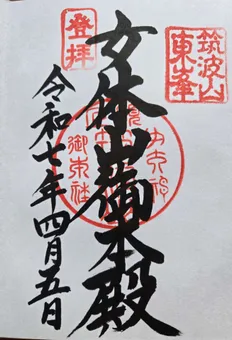 筑波山
東峯
登拝
女体山御本殿
令和七年四月五日